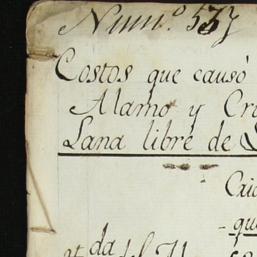 Num.º 537
Costos que causó
Alamo y Cr
Lana libre de
Cri
qu